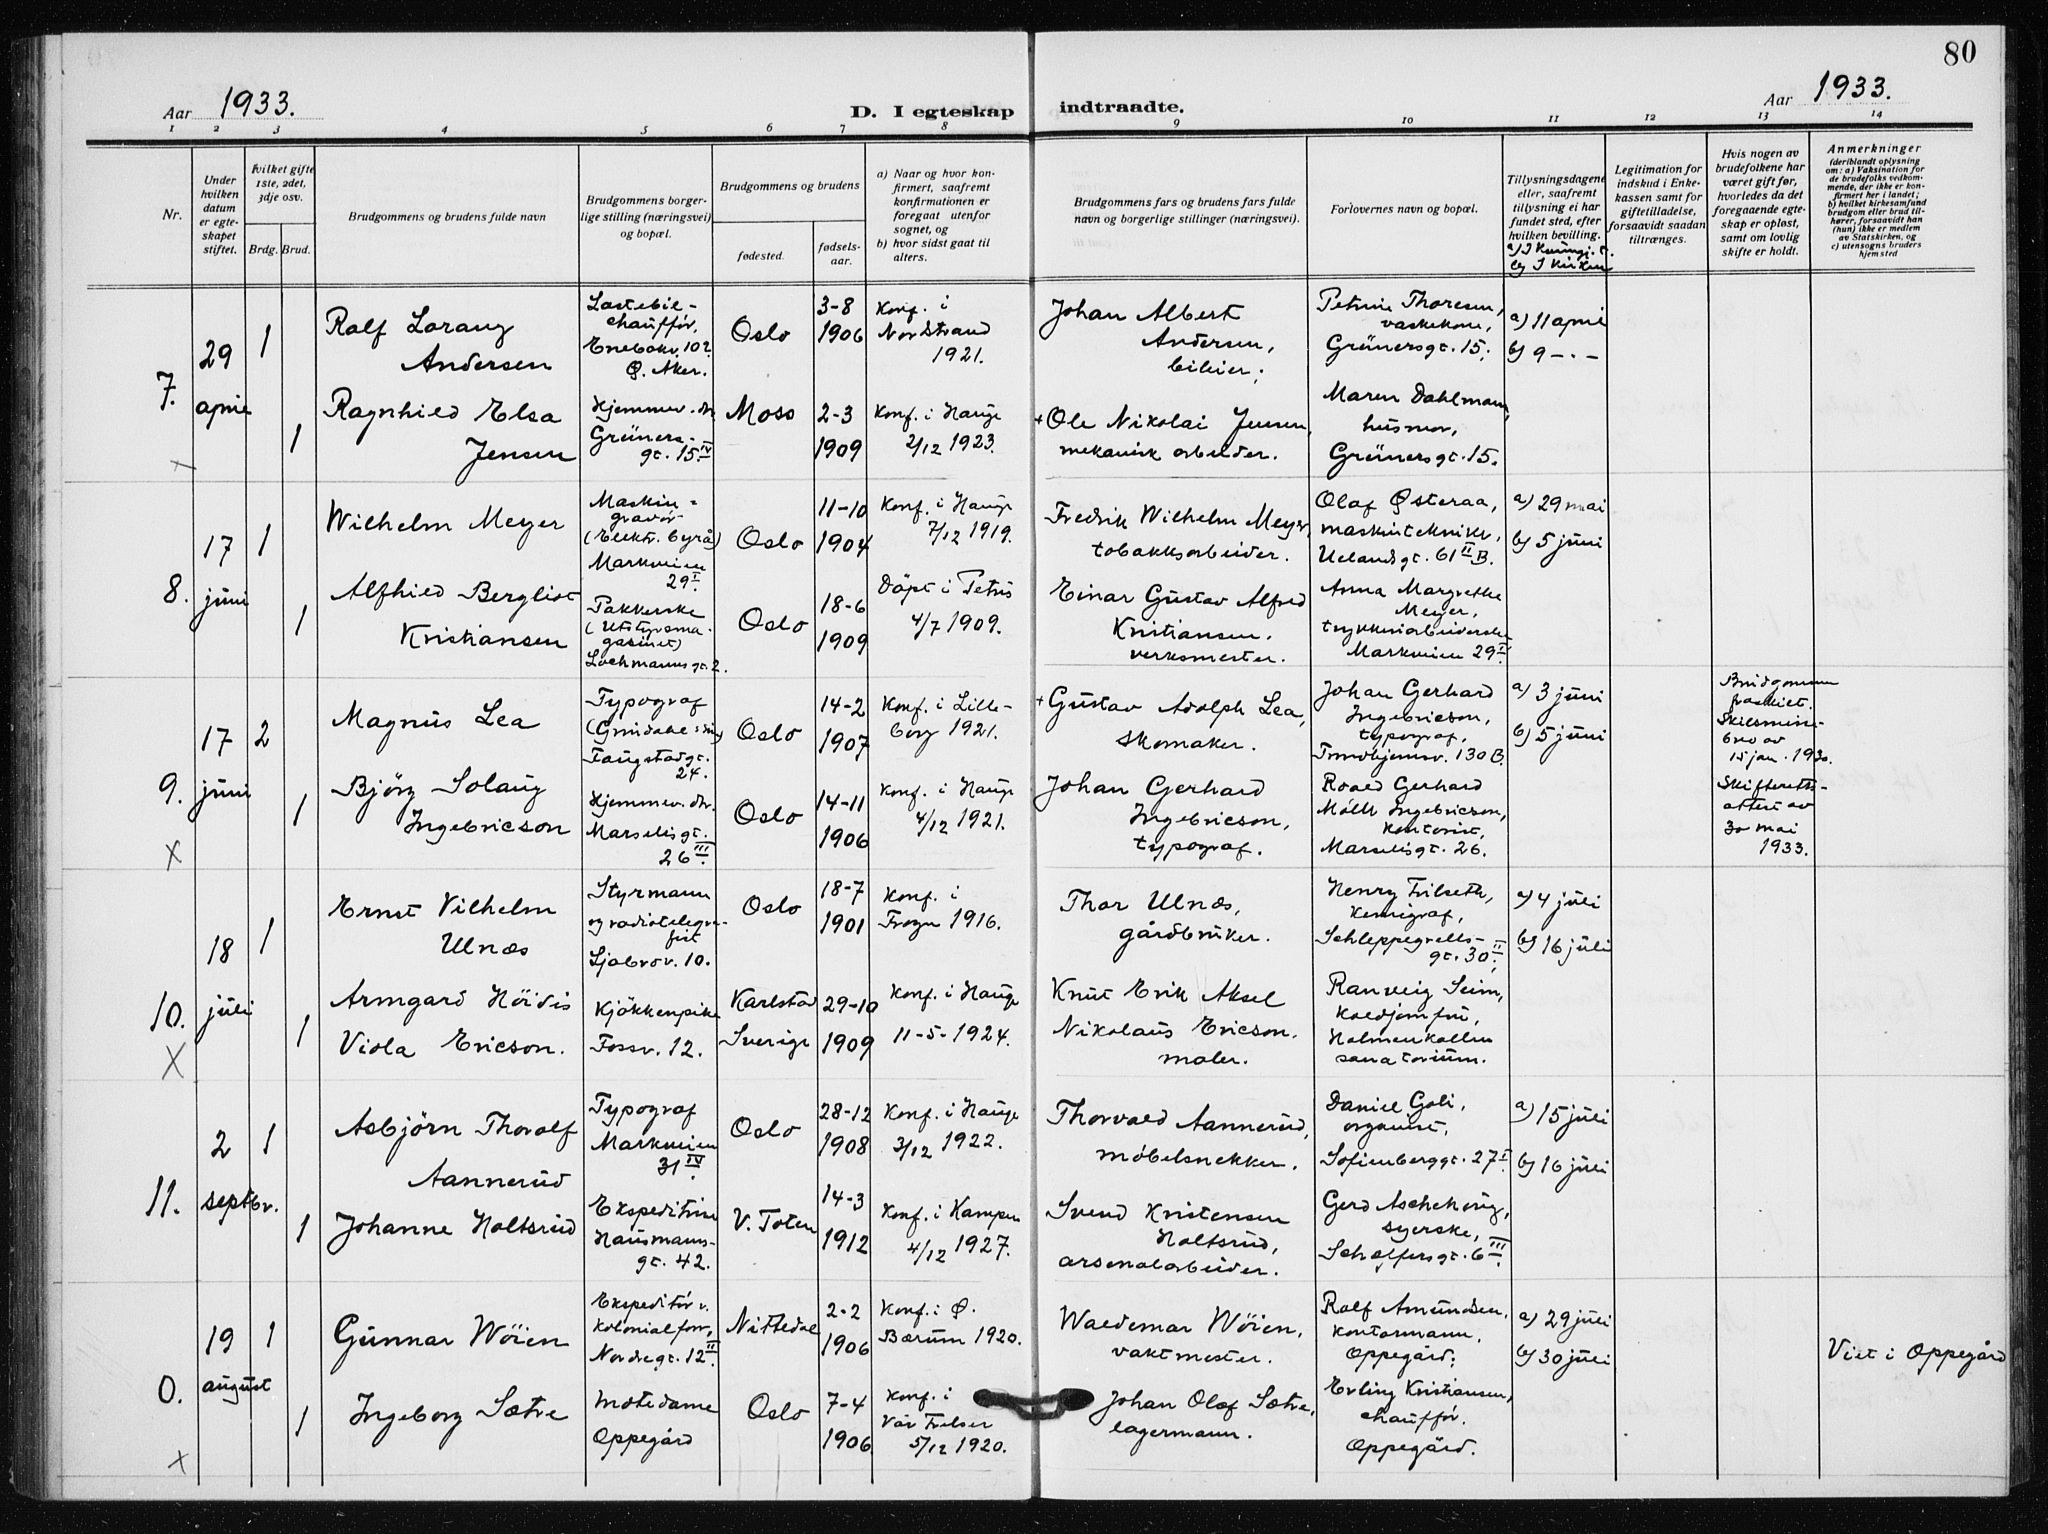 80
Aar 1933.
D. I egteskap indtraadte.
Aar 1933.
1 2 3 4 5 6 7 8 9 10 11 12 13 14
Nr.
Under hvilken datum er egteskapet stiftet.
hvilket gifte 1ste, 2det, 3dje osv.
Brdg. Brud.
Brudgommens og brudens fulde navn
Brudgommens borgerlige stilling (næringsvei) og bopæl.
Brudgommens og brudens
fødested.
fødselsaar.
a) Naar og hvor konfirmert, saafremt konfirmationen er foregaat utenfor sognet, og
b) hvor sidst gaat til alters.
Brudgommens fars og brudens fars fulde navn og borgerlige stillinger (næringsvei).
Forlovernes navn og bopæl.
Tillysningsdagene eller, saafremt tillysning ei har fundet sted, efter hvilken bevilling.
Legitimation for indskud i Enkekassen samt for giftetilladelse, forsaavidt saadan tiltrænges.
Hvis nogen av brudefolkene har været gift før, hvorledes da det foregaaende egteskap er opløst, samt om lovlig skifte er holdt.
Anmerkninger
(deriblandt oplysning om: a) Vaksination for de brudefolks vedkommende, der ikke er konfirmert her i landet;
b) hvilket kirkesamfund brudgom eller brud tilhører, forsaavidt han (hun) ikke er medlem av Statskirken, og
c) utensogns bruders hjemsted
7.
29 april
1
Ralf Lorang
Andersen
Lastebil-
chauffør,
Enebakv. 102
Ø. Aker.
Oslo
3-8
1906
Konf. i
Nordstrand
1921.
Johan Albert
Andersen,
bileier;
Petrine Thoresen,
vaskekone,
Grünersgt. 15;
a) 11 april
b) 9 -.-
1
Ragnhild Elsa
Jensen
Hjemmev. dtr.
Grüners-
gt. 15 IV
Moss
2-3
1909
Konf. i Hauge
2/12 1923.
+ Ole Nikolai Jensen,
mekanisk arbeider.
Maren Dahlmann,
husmor,
Grünersgt. 15.
8.
17 juni
1
Wilhelm Meyer
Maskin-
gravør
(Elekt. byrå)
Markveien
29 I
Oslo
11-10
1904
Konf. i Hauge
7/12 1919.
Fredrik Wilhelm Meyer,
tobakksarbeider.
Olaf Østeraa,
maskintekniker,
Uelandsgt. 61 II B.
a) 29 mai
b) 5 juni
1
Alfhild Bergliot
Kristiansen
Pakkerske
(Utstyrsma-
gasinet)
Lochmannsgt. 2.
Oslo
18-6
1909
Döpt i Petrus
4/7 1909.
Einar Gustav Alfred
Kristiansen.
verksmester.
Anna Margrethe
Meyer,
trykkeriarbeiderske
Markveien 29 IV
9.
17 juni
2
Magnus Lea
Typograf
Faugstadgt.
24.
Oslo
14-2
1907
Konf. i Lille-
borg 1921.
+ Gustav Adolph Lea,
skomaker.
Johan Gerhard
Ingebricson,
typograf,
Trondhjemsv. 130 B.
a) 3 juni
b) 5 juni
Brudgommen
fraskilt.
Skilsmisse-
brev av
15 jan. 1930.
Skifteretts-
attest av
30 mai
1933.
1
Bjørg Solaug
Ingebricson
Hjemmev. dtr.
Marselisgt.
26 III
Oslo
14-11
1906
Konf. i Hauge
4/12 1921.
Johan Gerhard
Ingebricson,
typograf.
Roald Gerhard
Ingebricson,
kontorist,
Marselisgt. 26.
X
10.
18 juli
1
Ernst Vilhelm
Ulnæs
Styrmann
og radiotelegra-
fist
Ljabrov. 10.
Oslo
18-7
1901
Konf. i
Frogn 1916.
Thor Ulnæs,
gårdbruker.
Henry Frilseth,
kemigraf,
Schleppegrells-
gt. 30 II
a) 4 juli
b) 16 juli
1
Armgard Höidis
Viola Ericson.
Kjökkenpike
Fossv. 12.
Karlstad
Sverige
29-10
1909
Konf. i Hauge
11-5-1924.
Knut Erik Aksel
Nikolaus Ericson.
maler.
Ranveig Seim,
koldjomfru,
Holmenkollen
sanatorium.
X
11.
2 septbr.
1
Asbjörn Thoralf
Aannerud
Typograf
Markveien
31 IV
Oslo
28-12
1908
Konf. i Hauge
3/12 1922.
Thorvald Aannerud,
møbelsnekker.
Daniel Goli,
organist,
Sofienberggt. 27 I
a) 15 juli
b) 16 juli
1
Johanne Holtsrud
Ekspeditrise
Hausmanns-
gt. 42.
V. Toten
14-3
1912
Konf. i Kampen
4/12 1927.
Svend Kristensen
Holtsrud,
arsenalarbeider.
Gerd Aschehoug,
syerske,
Schæffersgt. 6 III
0.
19 august
1
Gunnar Wöien
Ekspeditör v.
kolonialforr,
Nordregt. 12 II
Nittedal
2-2
1906
Konf. i Ø.
Bærum 1920.
Waldemar Wöien,
vaktmester.
Rolf Amundsen,
kontormann,
Oppegård;
a) 29 juli
b) 30 juli
Viet i Oppegård
1
Ingeborg Sætre
Motedame
Oppegård
Oslo
7-4
1906
Konf. i
Vår Frelser
5/12 1920.
Johan Olaf Sætre,
lagermann.
Erling Kristiansen,
chauffør.
Oppegård.
X